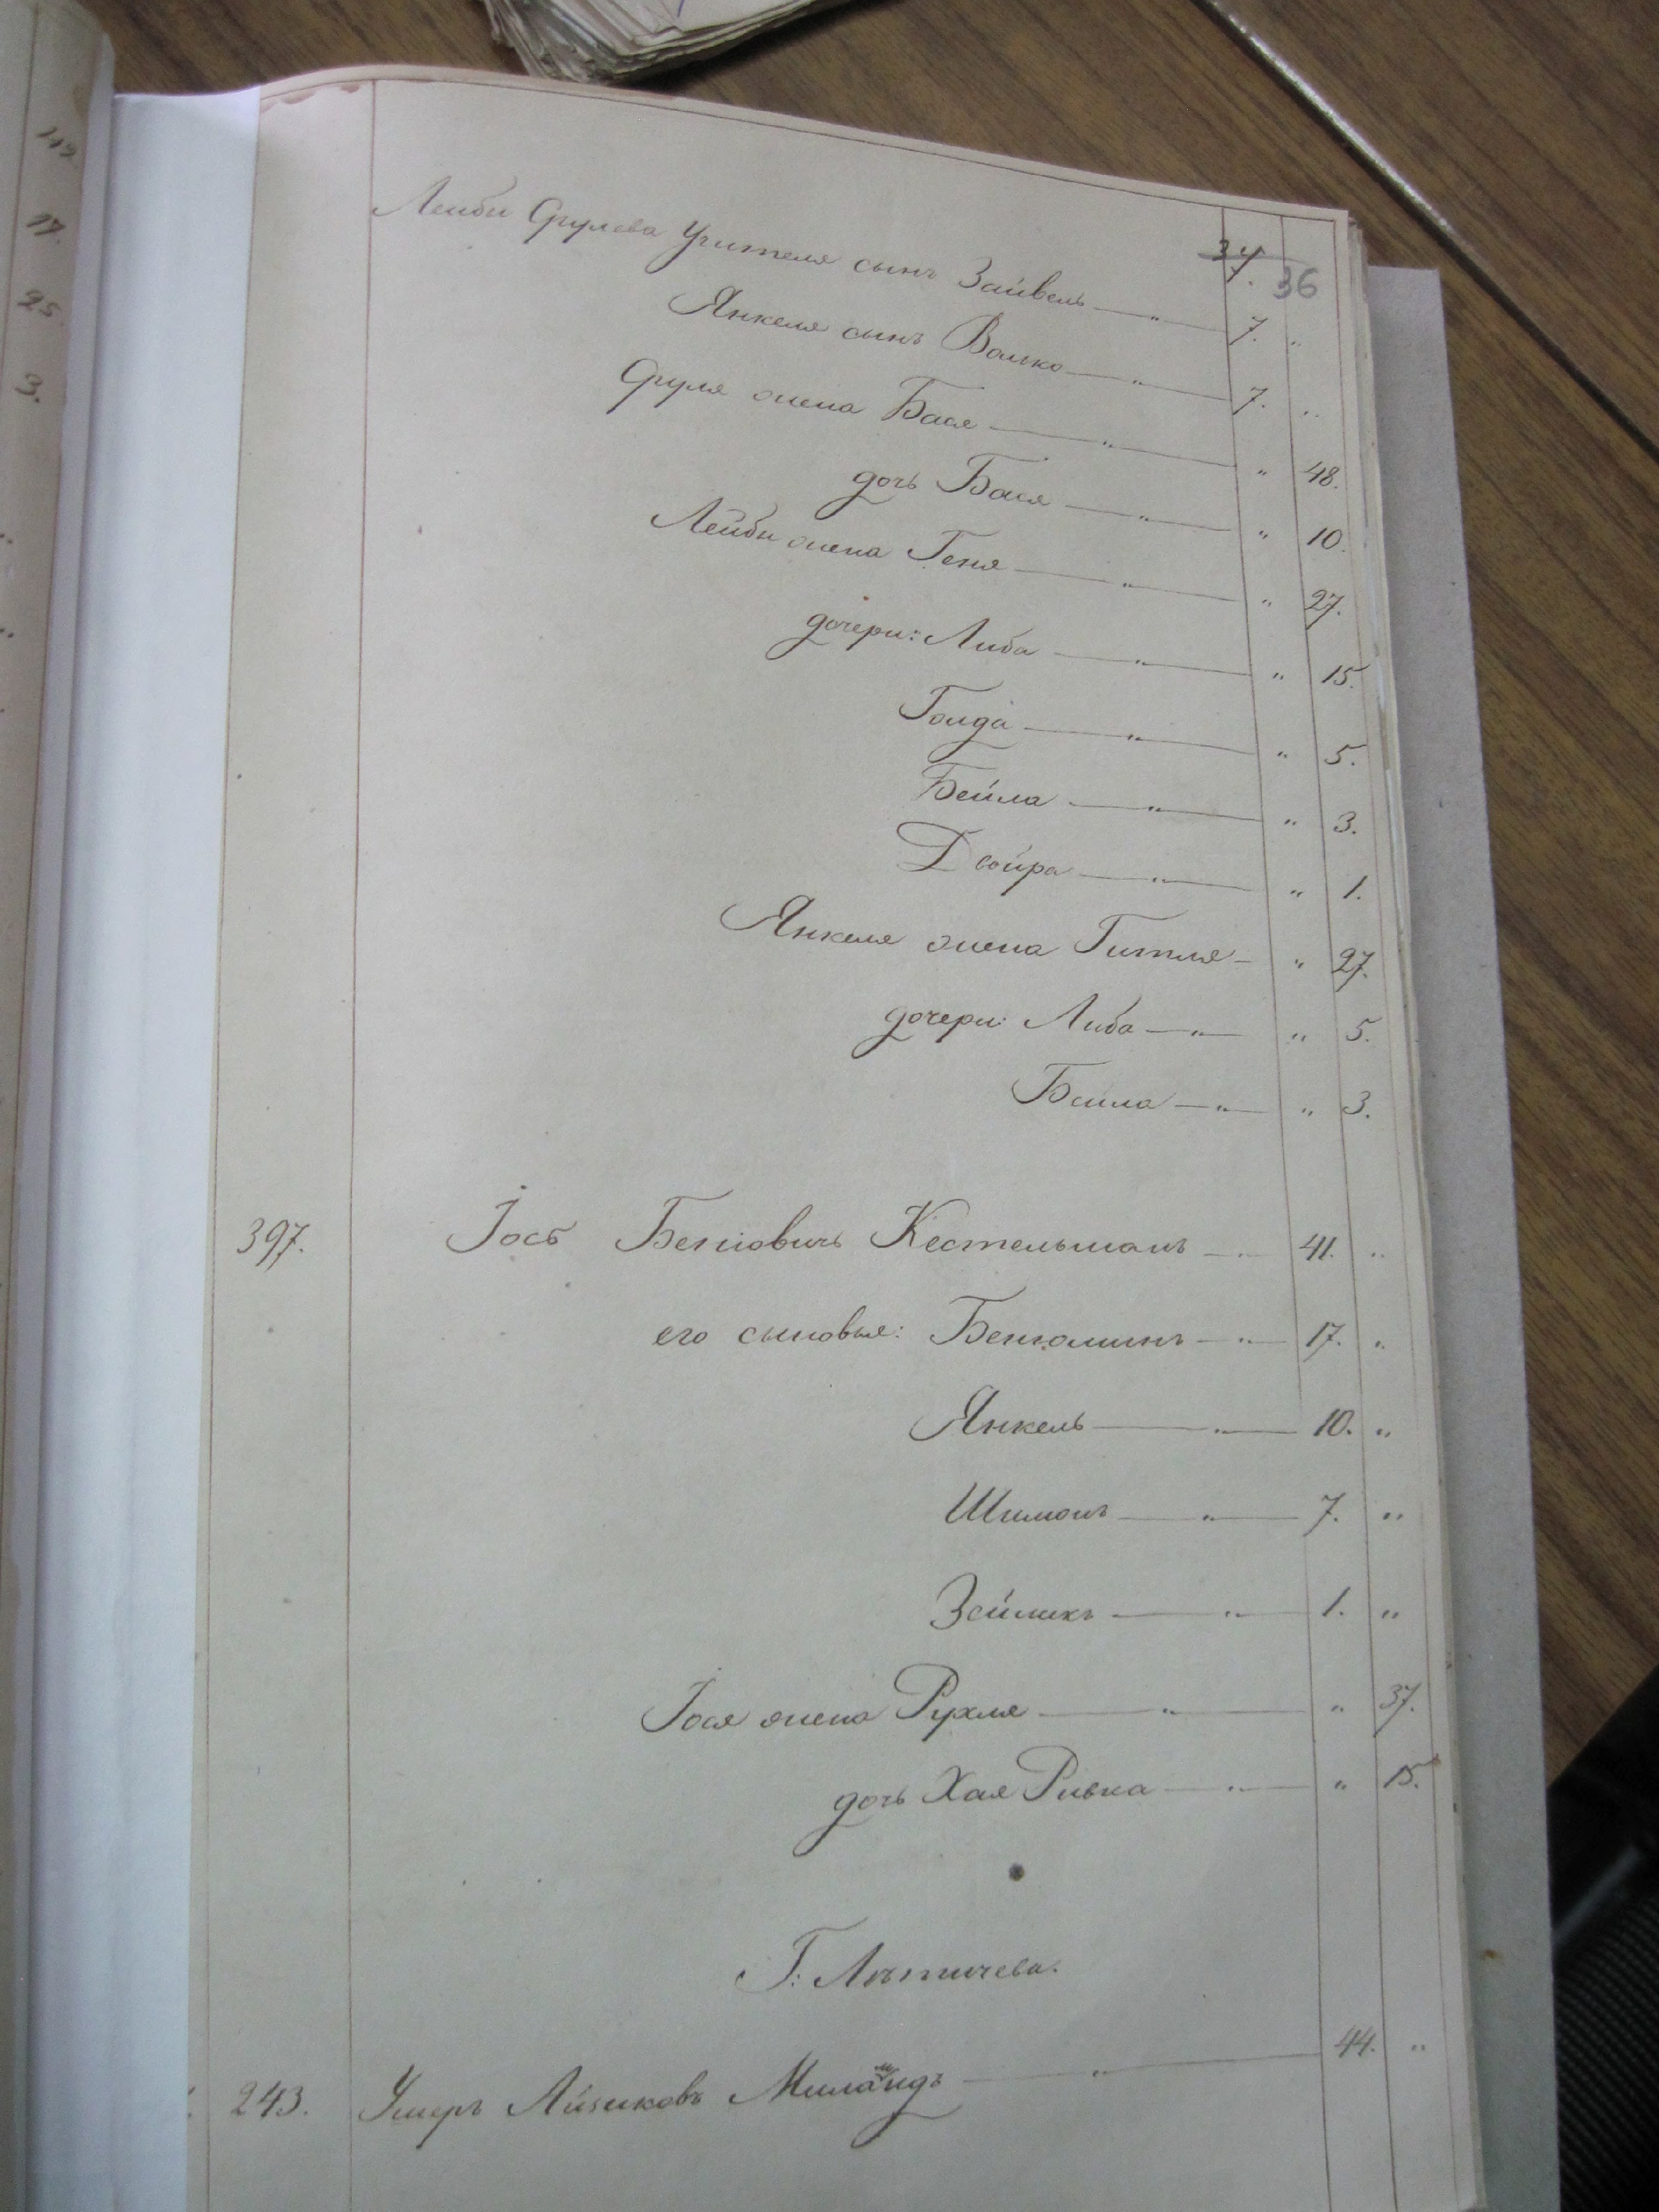 34. 36
Лейби Срулева Учителя сынъ Зайвель — " — 7. "
Янкеля сынъ Волько — " — 7. "
Сруля жена Бася — " — " 48.
дочь Бася — " — " 10.
Лейби жена Геня — " — " 27.
дочери: Либа — " — " 15.
Голда — " — " 5.
Бейла — " — " 3.
Двойра — " — " 1.
Янкеля жена Гитля — " 27.
дочери: Либа — " — " 5.
Бейла — " — " 3.
397. Іось Беніовичъ Кестельманъ — " 41. "
его сыновья: Беніоминъ — " — 17. "
Янкель — " — 10. "
Шимонъ — " — 7. "
Зейликъ — " — 1. "
Іося жена Рухля — " — " 37.
дочь Хая Ривка — " — " 15.
Г: Лѣтичева.
243. Ушеръ Айзиковъ — " — 44. "
112.
17.
25.
3.